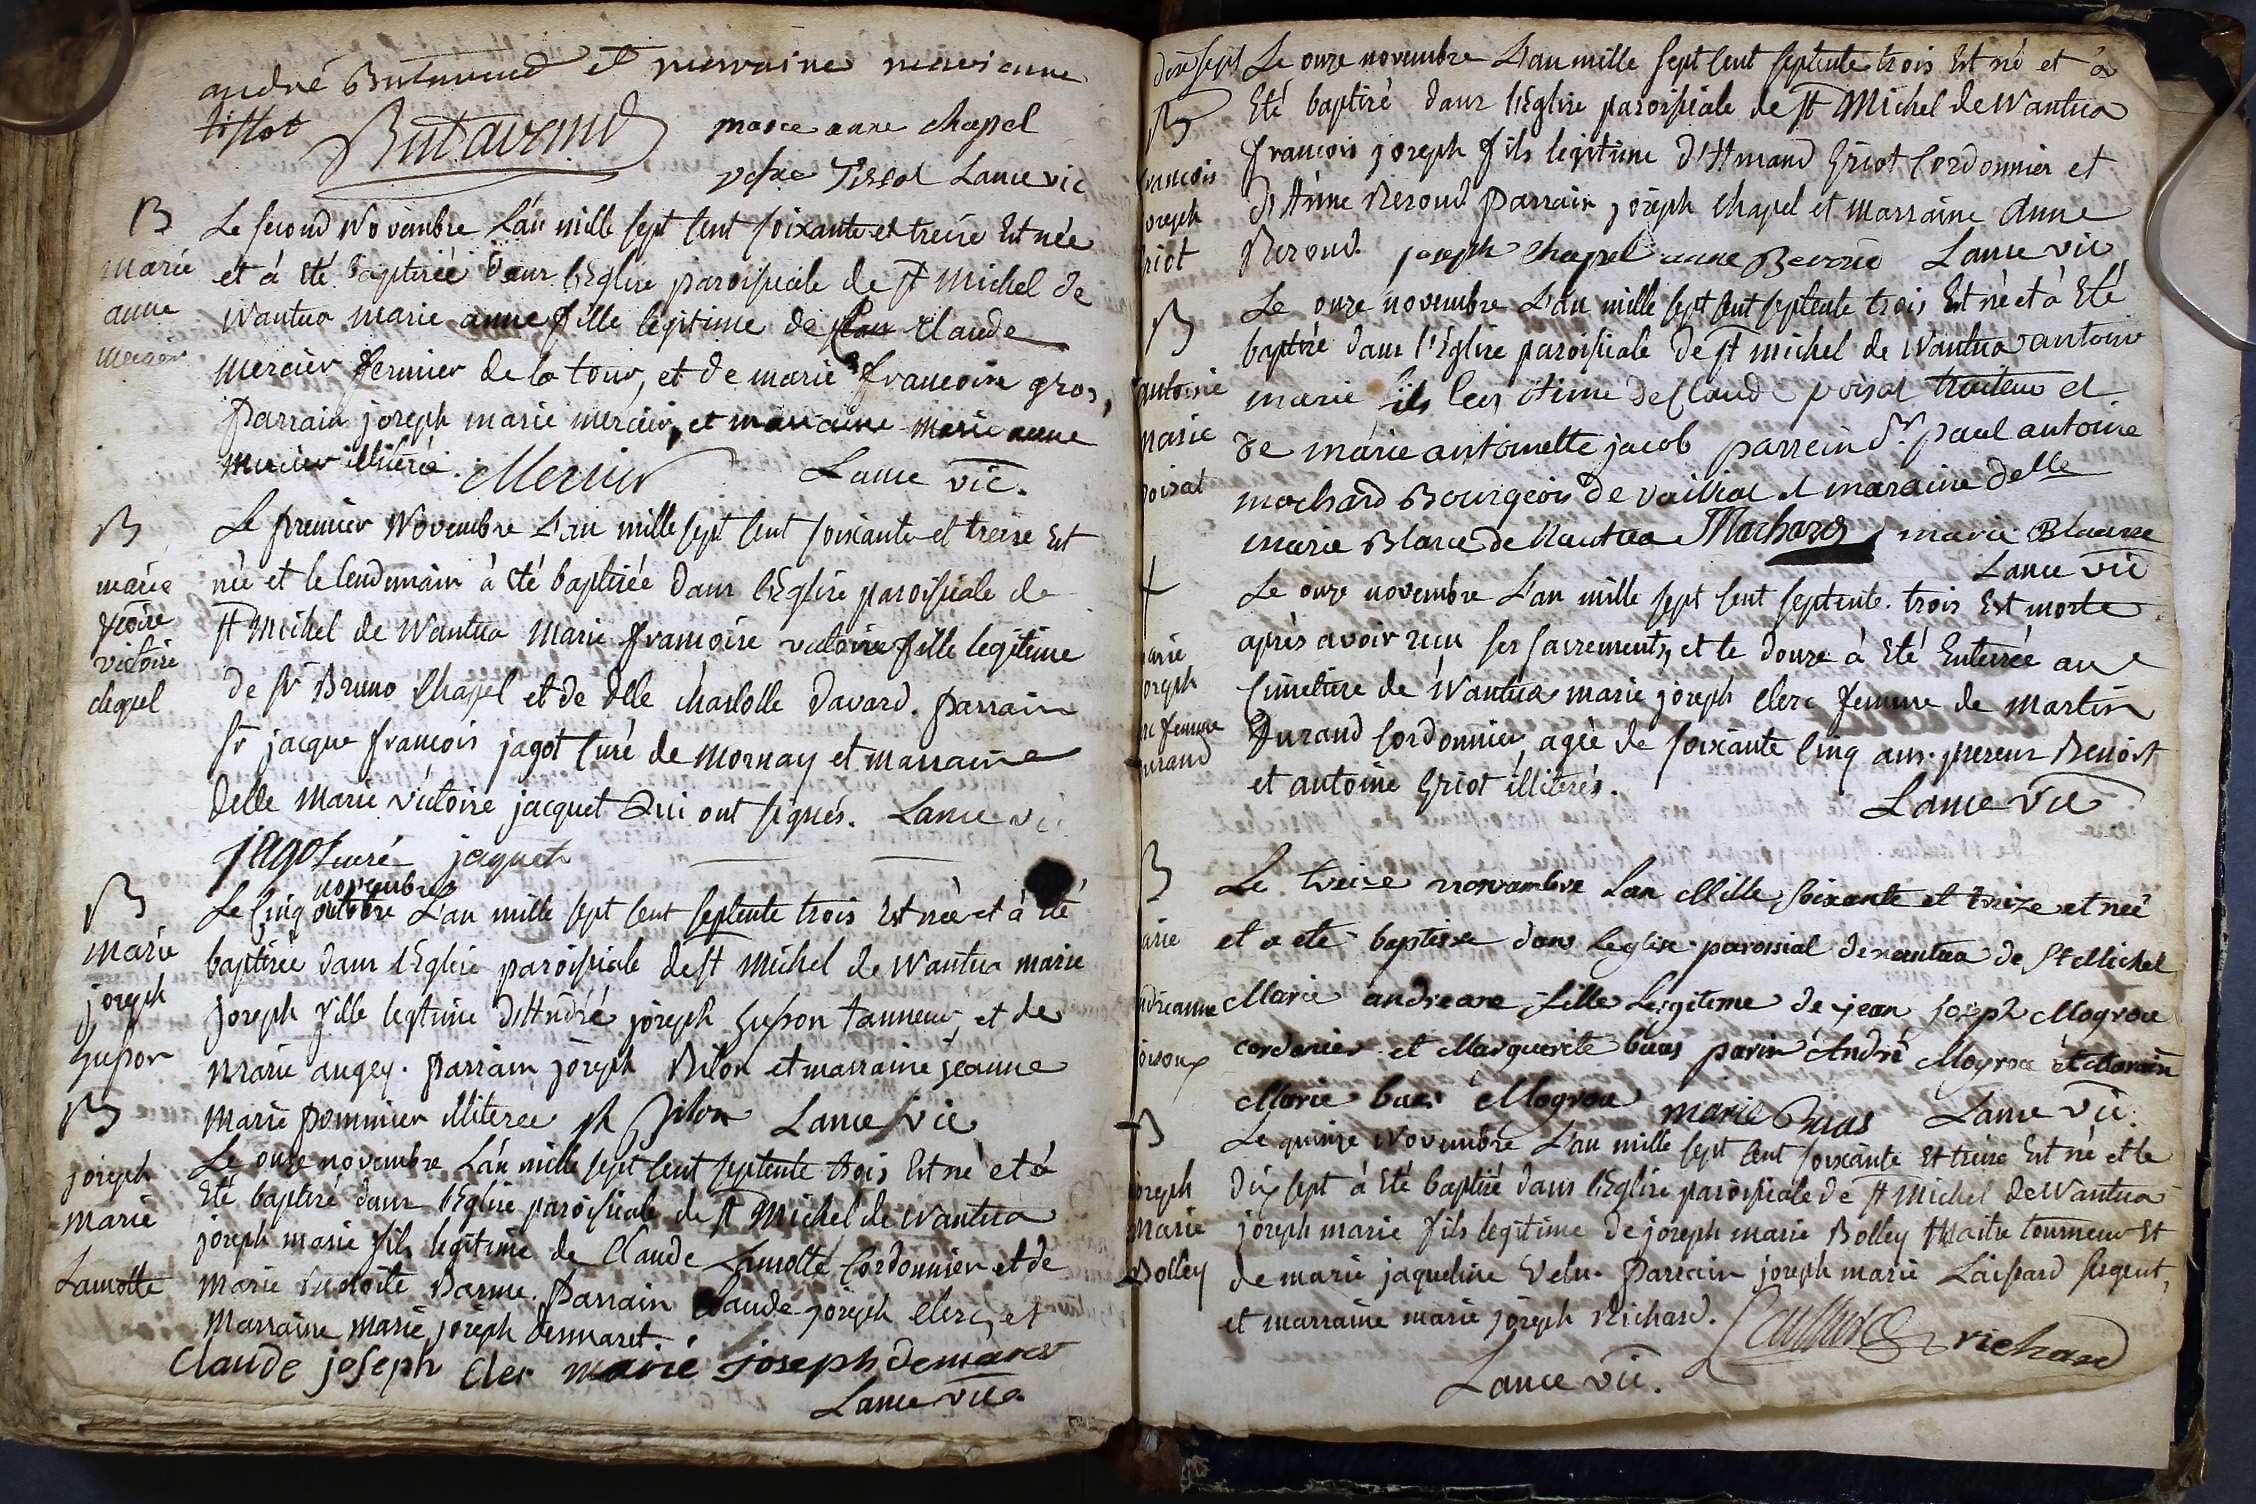 andré Butavand et marraine marianne
tissot Butavand marie anne chapel
vefve Tissot Lance vic
B
marie
anne
mercier
Le second Novembre L'an mille sept cent soixante et treize Est née
et à eté baptisée dans l'Eglise paroissiale de st Michel de
Nantua marie anne fille legitime de Claude
mercier fermier de la tour, et de marie françoise gros,
parrain joseph marie mercier, et marraine marie anne
mercier illiterée. Mercier Lance vic.
B
marie
fcoise
victoire
chapel
Le premier Novembre L'an mille sept cent soixante et treize Est
née et le lendemain à eté baptisée dans l'Eglise paroissiale de
st Michel de Nantua Marie françoise victoire fille legitime
de sr Bruno Chapel et de dlle charlotte davard. parrain
sr jacque françois jagot curé de Mornay et marraine
delle Marie victoire jacquet Qui ont signés. Lance vi
jagot curé jaquet
B
Marie
joseph
Gusson
novembre
Le cinq octobre L'an mille sept cent septente trois Est née et à eté
baptisée dans l'Eglise paroissiale de st Michel de Nantua marie
joseph fille legtime d'André joseph Gusson tanneur, et de
Marie augey. parrain joseph Bilon et marraine jeanne
Marie pommier illiterée Bilon Lance vic
B
joseph
Marie
Lamotte
Le onze novembre L'an mille sept cent septente trois Est né et à
Eté baptisé dans l'Eglise paroissiale de st Michel de Nantua
joseph marie fils legitime de Claude Lamotte Cordonnier et de
Marie Barme. Parrain Claude joseph Clerc, et
Marraine Marie joseph desmaret.
Claude joseph Cler marie joseph demares
Lance vic
dixsept
B
francois
joseph
Griot
Le onze novembre L'an mille sept cent septente trois Est né et à
Eté baptisé dans l'Eglise paroissiale de st Michel de Nantua
françois joseph fils legitime d'Amand Griot Cordonnier et
d'Anne Beroud Parrain joseph Chapel et marraine Anne
Beroud. joseph Chapel anne Lance vic
B
antoine
marie
poisat
Le onze novembre L'an mille sept cent septente trois Est né et à Eté
baptisé dans l'Eglise paroissiale de st michel de Nantua antoine
marie fils legitime de Claude poisat traiteur et
de marie antoinette jacob parrein Sr paul antoine
mochard Bourgeois de et maraine delle
marie Blanc de Nantua Mochard marie
Lance vic
+
marie
joseph
femme
Durand
Le onze novembre L'an mille sept cent septente trois Est morte
après avoir reçu ses sacrements, et le douze à Eté Enterrée au
Cimetiere de Nantua marie joseph clerc femme de Martin
Durand Cordonnier, agée de soixante cinq ans. presens Benoit
et antoine Griot illiterés.
Lance vic
B
marie
andreanne
Le treize novambre Lan Mille soixante et treize et neé
et a eté baptisée dans leglise parossial de nantua de St Michel
Marie andreane fille legiteme de jean joseph Mogrou
cordonier et Marguerite buas parin André Mogrou et Marain
Marie buas Mogrou marie Buas Lance vic.
B
joseph
Marie
Bolley
Le quinze Novembre L'an mille sept cent soixante et treize Est né et le
dix sept à Eté baptisé dans l'Eglise paroissiale de st Michel de Nantua
joseph marie fils legitime de joseph marie Bolley Maitre tourneur et
de marie jaqueline Velu. Parrain joseph marie sergent,
et marraine marie joseph Richard.
richard
Lance vic.